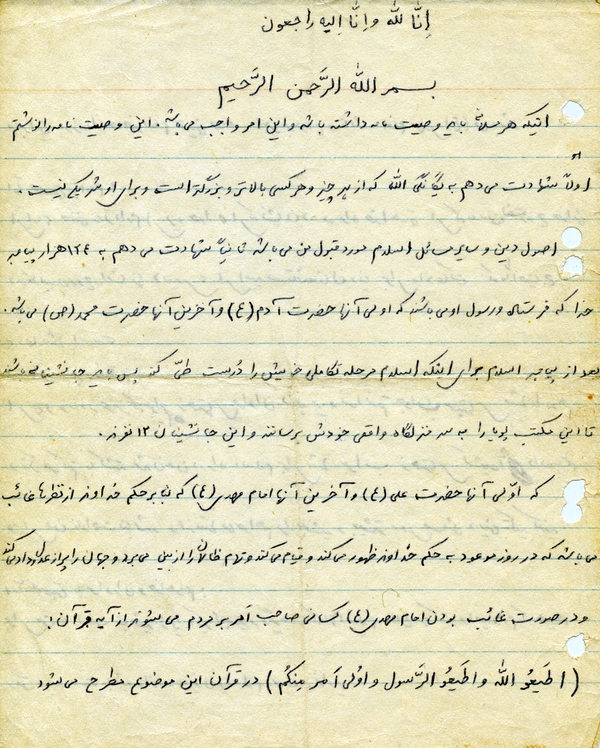 إنّا لله وانّا الیه راجعون
بسم الله الرَّحمن الرَّحیم
اینکه هر مسلمانی باید وصیت نامه داشته باشد و این امر واجب می باشد. این وصیت نامه را نوشتم
اولاً شهادت می دهم به یگانگی الله که از هر چیز و هر کسی بالاتر و بزرگتر است و برای او شریکی نیست.
اصول دین و سایر مسائل اسلام مورد قبول من می باشد ثانیاً شهادت می دهم به ۱۲۴ هزار پیامبر
خدا که فرستاده و رسول او می باشند که اولی آنها حضرت آدم (ع) و آخرین آنها حضرت محمد (ص) می باشد.
بعد از پیامبر اسلام برای اینکه اسلام مرحله تکاملی خویش را دُرست طیّ کند پس باید جانشینانی باشند
تا این مکتب پویا را به سر منزلگاه واقعی خودش برسانند و این جانشینان ۱۲ نفرند.
که اوّلی آنها حضرت علی (ع) و آخرین آنها امام مهدی (ع) که بنابر حکم خداوند از نظرها غائب
می باشد که در روز موعود به حکم خداوند ظهور می کند و قیام می کند و تمام ظالمان را از بین می برد و جهان را پر از عدل و داد می کند
و در صورت غائب بودن امام مهدی (ع) کسانی صاحب امر بر مردم می شوند از آیه قرآن:
(اطَیعُو الله و اطَیعُو الرَّسول و اوُلی اَمر مِنکُم) در قرآن این موضوع مطرح می شود